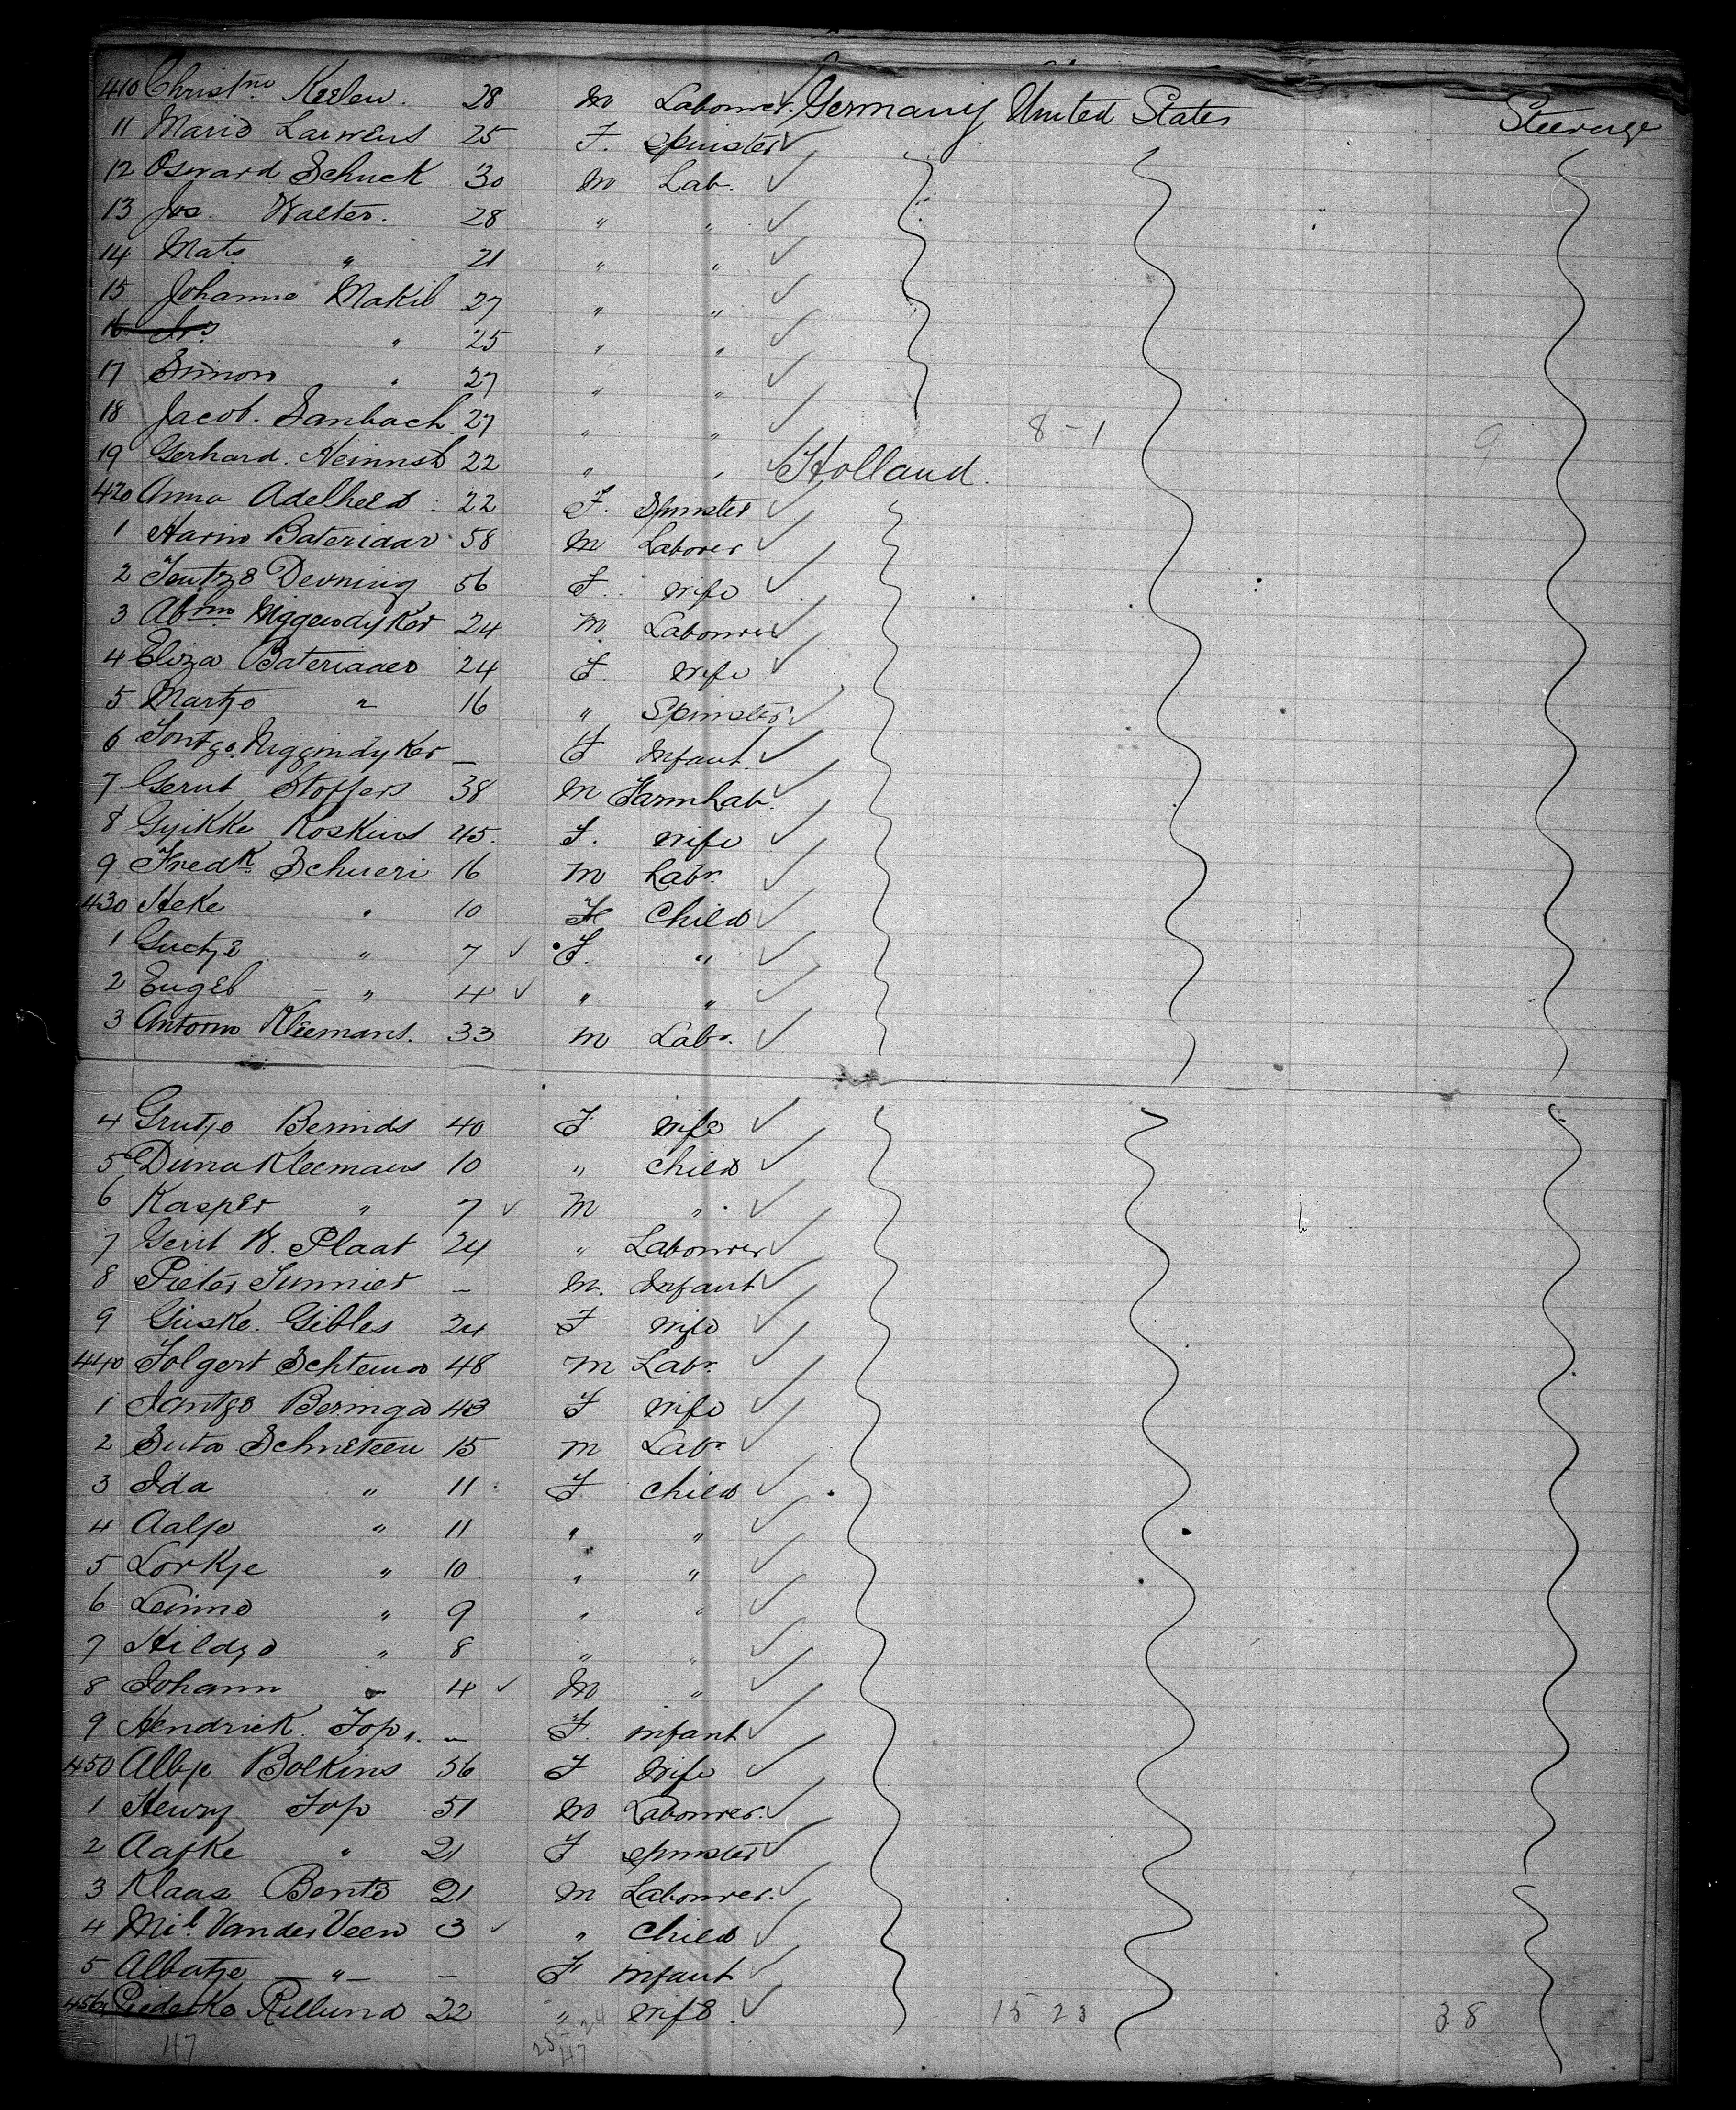 410 Christne Keelen. 28 m Labourer. Germany United States Steerage
11 Marie Lauwens 25 F. Spinster
12 Oswald Schuck 30 m Lab.
13 Jos. Walter. 28 " "
14 Mats " 21 " "
15 Johanne Makil 27 " "
16 " 25 " "
17 Simon " 27 " "
18 Jacob. Sanbach 27 " " 8-1 9
19 Gerhard. 22 " " Holland.
420 Anna Adelheid 22 F. Spinster
1 Harm Bateriaar 58 m Laborer
2 Devning 56 F. wife
3 Abrm Niggendyker 24 m Labourer
4 Eliza Bateriaaer 24 F. wife
5 Martje " 16 " Spinster
6 Niggindyker — F Infant
7 Gerut Stoffers 38 m Farm Lab.
8 Gyikke Roskins 45. F. wife
9 Fredk. Schueri 16 m Labr.
430 Heke " 10 F Child
1 Guetje " 7 F. "
2 Engel — " 4 " "
3 Antom Kleemans. 33 m Labr.
4 Grutje Berinds 40 F wife
5 Dina Kleemans 10 " Child
6 Kasper " 7 m "
7 Gerit W. Plaat 24 " Labourer
8 Pieter Sunnier — m. Infant
9 Giiske. Gibles 24 F wife
440 Folgert Schtema 48 m Labr.
1 Jantje Beringa 43 F wife
2 Suta Schneteen 15 m Labr
3 Ida " 11 F Child
4 Aalje " 11 " "
5 Lorkje " 10 " "
6 " 9 " "
7 Hildje " 8 " "
8 Johann " 4 m "
9 Hendrick. Top. — F. infant
450 Albje Bolkins 56 F wife
1 Henry Top 51 m Labourer.
2 Aafke " 21 F spinster
3 Klaas Bente 21 m Labourer.
4 Mil. Vander Veen 3 " Child
5 Albatje — " — — F infant
456 Rillund 22 " wife. 15 23 38
47 23 24
47